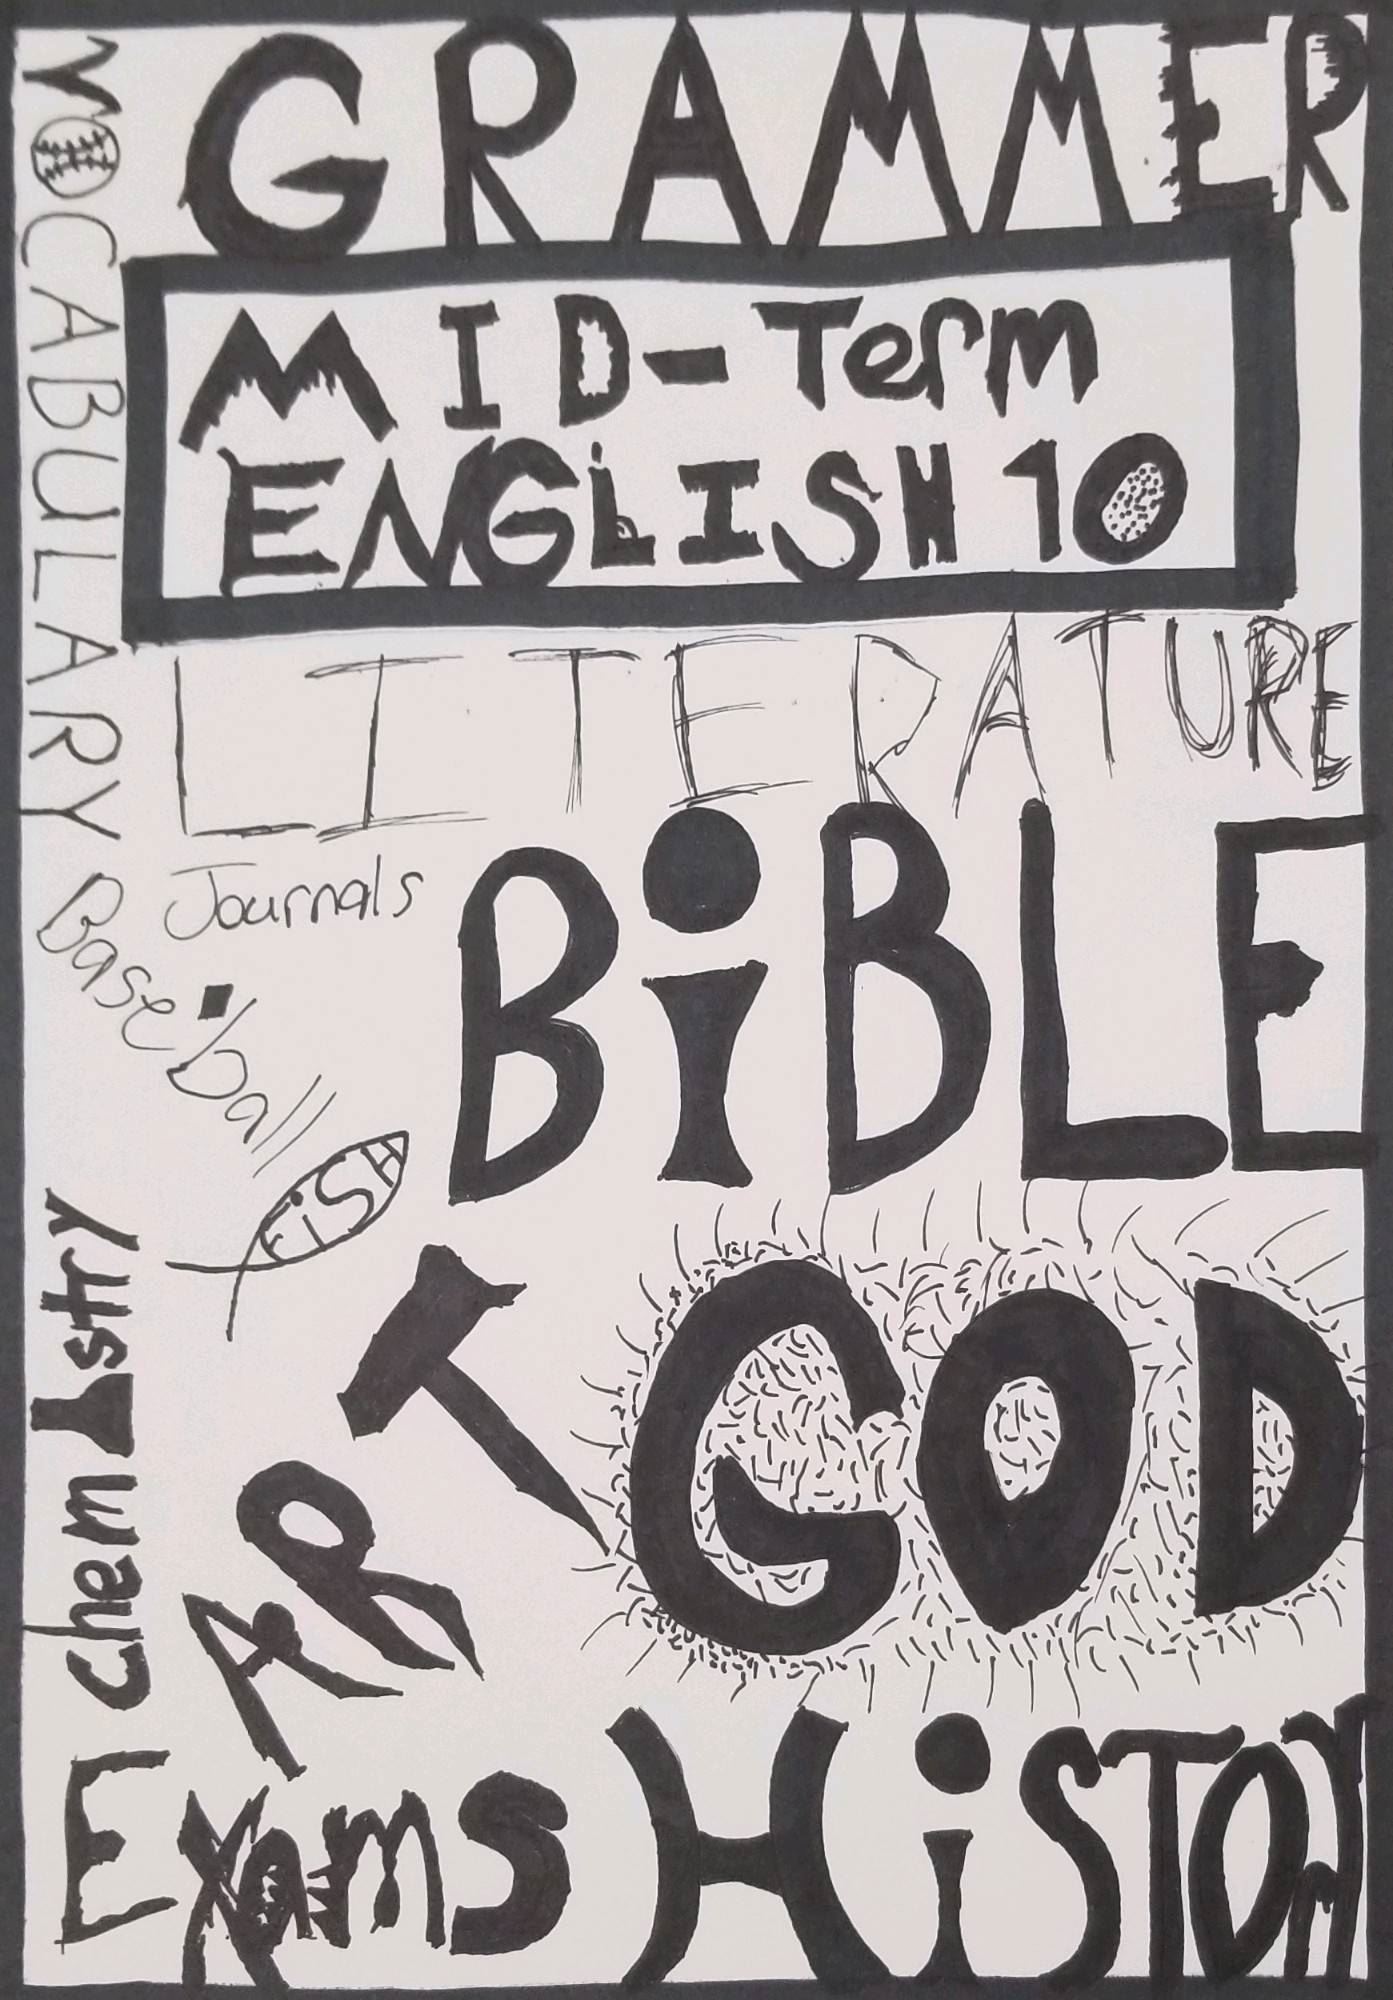 GRAMMER
VOCABULARY
MID-Term
ENGLISH 10
LITERATURE
Journals
BiBLE
Base ball
FiSH
ART
GOD
Chemistry
Exams
HiSTORY